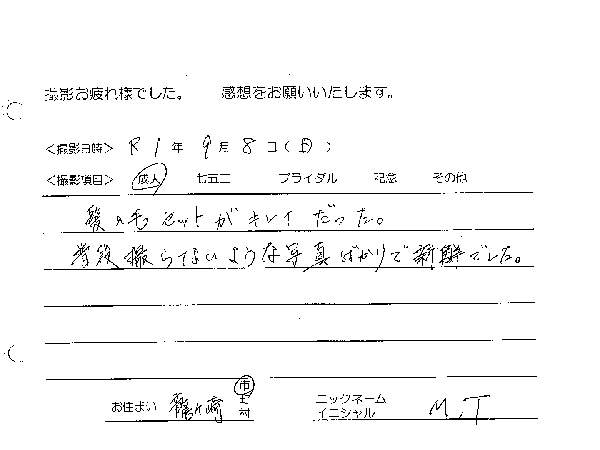 撮影お疲れ様でした。 感想をお願いいたします。
<撮影日時> R 1 年 9 月 8 日 (日)
<撮影項目> 成人 七五三 ブライダル 記念 その他
髪の毛セットがキレイだった。
普段撮らないような写真ばかりで新鮮でした。
お住まい 龍ヶ崎 市 町 村 ニックネーム イニシャル M.T